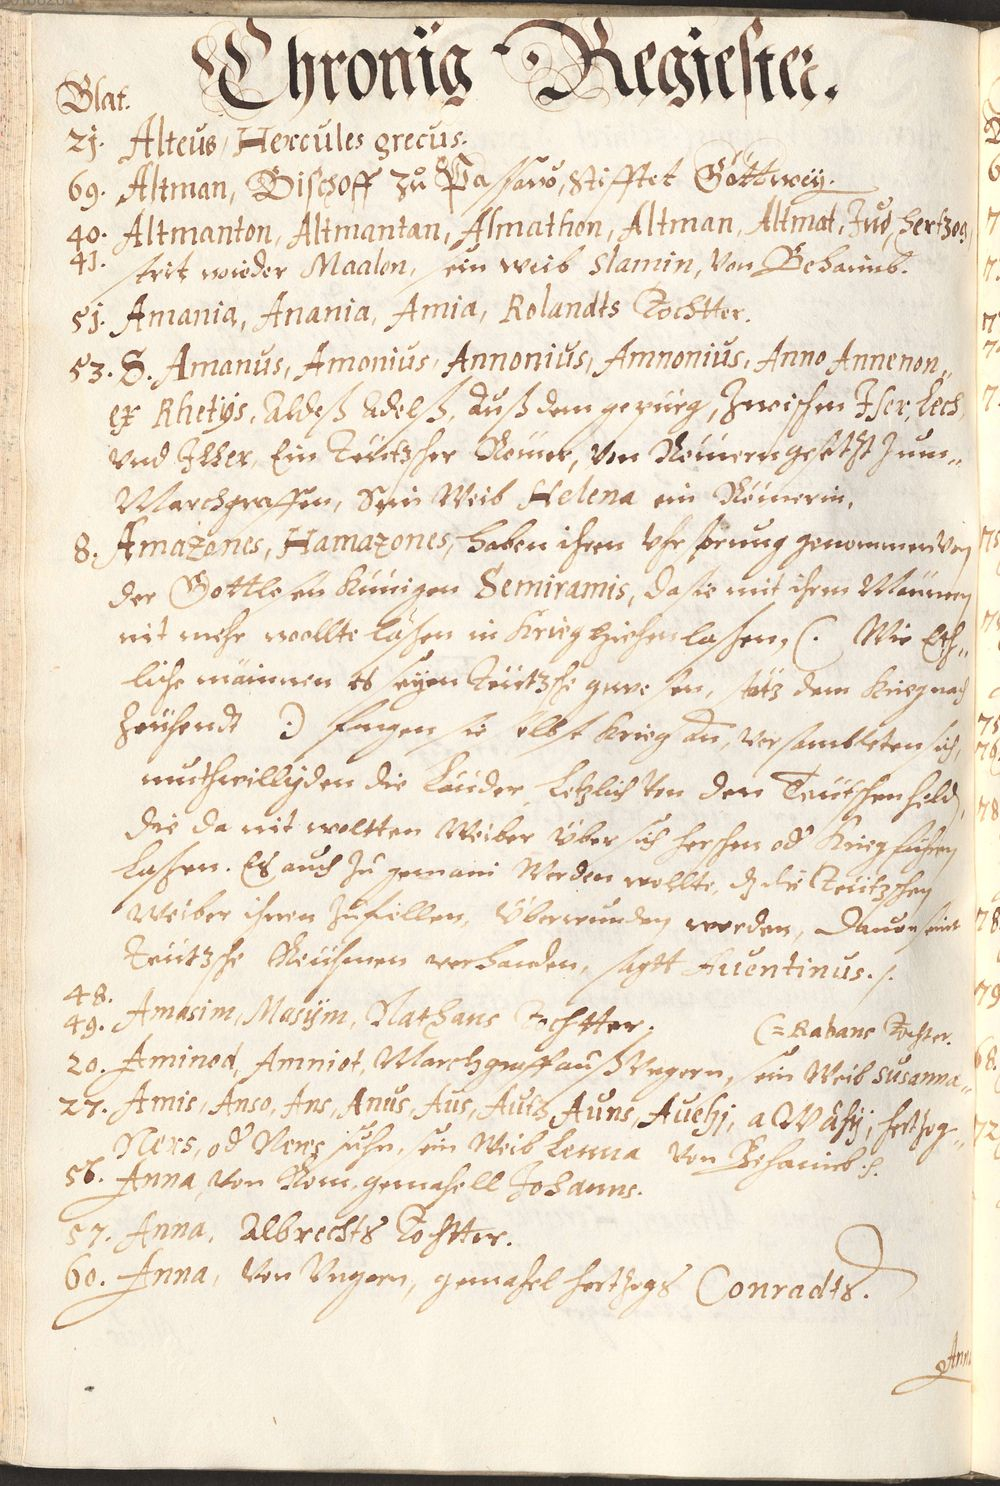 Chronig Regiester.
Blat.
21. Alteus, Hercules grecus.
69. Altman, Bischoff zu Passaw, Stifftet Göttwey.
40. Altmanton, Altmantan, Asmathon, Altman, Altmat, Jud, Hertzog,
41. strit wieder Maalon, sein weib Slamin, von Behaimb.
51. Amania, Anania, Amia, Rolandts Tochtter.
53. S. Amanus, Amonius, Annonius, Amnonius, Anno Annenon,,
ex Rhetijs, Aldeß Adelß, Auß dem gepürg, Zwischen Iser, Lech,
vnd Iller, Ein Teütscher Römer, von Römern gesetzt Zum,,
Marchgraffen, Sein Weib Helena ein Römerin,
8. Amazones, Hamazones, haben ihren Vhrsprung genommen von
der Gottlosen Künigen Semiramis, da sie mit ihren Männern
nit mehr wollte lassen in Krieg Ziehen lassen, (. Wie Etz,,
liche mainnen es seyen Teütsche gewesen, stätz dem Krieg nach
Ziehendt :) fingen sie selbst Krieg an, versambleten sich,
muthwilligden die Länder, Letzlich Von den Teutschen held,
die da nit woltten Weiber Über sich herschen od Krieg führen
Lassen. Es auch Zu gemain Werden wollte, dz die Teützschen
Weiber ihnen Zufiellen, Überwunden worden, Dauon seint
Teützsche Reühmen verhanden, sagtt Auentinus.
48.
49. Amasim, Masijm, Nathans Tochtter. (= Rabans Tochter.
20. Aminod, Amniot, Marchgraff auß Vngern, sein Weib Susanna,,
27. Amis, Anso, Ans, Anus, Aus, Auß, Auns, Auehj, Hertzog,,
Ners, od Nerz suhn, sein Weib Lenna Von Behaimb.
56. Anna, von Rom, gemahell Johanns.
57. Anna, Albrechts Tochtter.
60. Anna, von Vngern, gemahel Hertzogs Conradts.
Anna